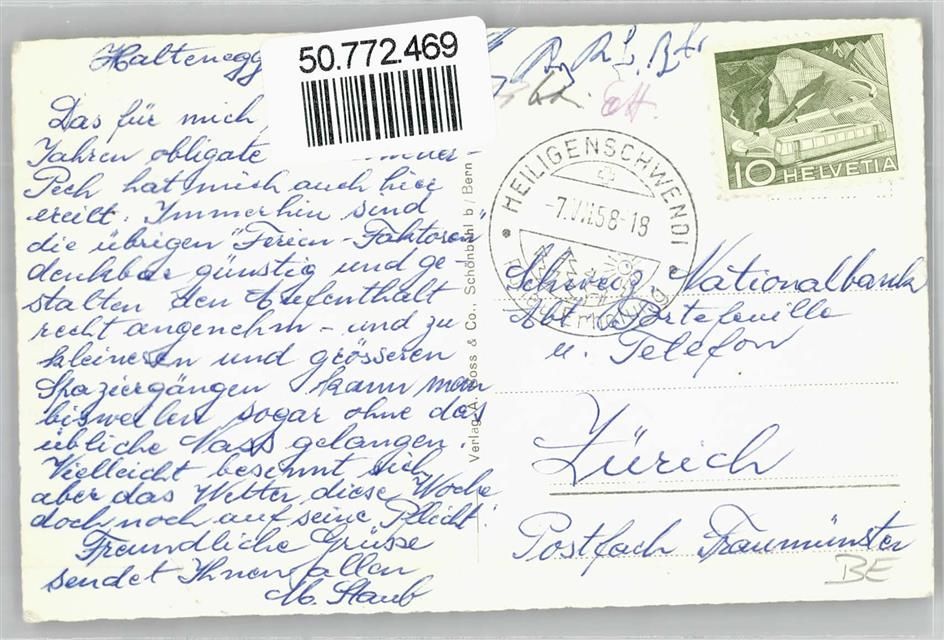 50.772.469
Haltenegg
Das für mich
Jahren obligate
Pech hat mich auch hier
ereilt. Immerhin sind
die übrigen "Ferien-Faktoren"
denkbar günstig und ge-
stalten den Aufenthalt
recht angenehm - und zu
kleineren und grösseren
Spaziergängen kann man
bisweilen sogar ohne das
übliche Nass gelangen.
Vielleicht besinnt sich
aber das Wetter diese Woche
doch noch auf seine "Pflicht"
Freundliche Grüsse
sendet Ihnen allen
M. Staub
Verlag A. Boss & Co. Schönbühl b/Bern
HEILIGENSCHWENDI
-7.VII.58-18
10 HELVETIA
Schweiz Nationalbank
Abt. Portefeuille
u. Telefon
Zürich
Postfach Fraumünster
BE